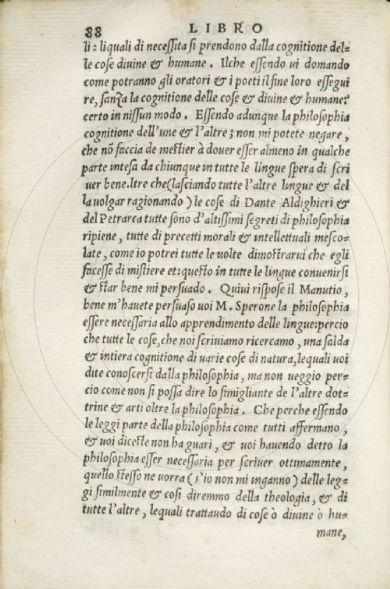 88 LIBRO
li: liquali di necessita si prendono dalla cognitione del=
le cose diuine & humane. Ilche essendo ui domando
come potranno gli oratori & i poeti il fine loro essegui
re, sanza la cognitione delle cose & diuine & humane?
certo in nissun modo. Essendo adunque la philosophia
cognitione dell'une & l'altre; non mi potete negare,
che nõ faccia de mestier à douer esser almeno in qualche
parte intesa da chiunque in tutte le lingue spera di scri
uer bene. ltre che (lasciando tutte l'altre lingue & del
la uolgar ragionando) le cose di Dante Aldighieri &
del Petrarca tutte sono d'altissimi segreti di philosophia
ripiene, tutte di precetti morali & intellettuali mesco=
late, come io potrei tutte le uolte dimostrarui che egli
facesse di mistiere et: questo in tutte le lingue conuenirsi
& star bene mi persuado. Quiui rispose il Manutio,
bene m'hauete persuaso uoi M. Sperone la philosophia
essere necessaria allo apprendimento delle lingue: percio
che tutte le cose, che noi scriuiamo ricercamo, una salda
& intiera cognitione di uarie cose di natura, lequali uoi
dite conoscersi dalla philosophia, ma non ueggio per=
cio come non si possa dire lo simigliante de l'altre dot=
trine & arti oltre la philosophia. Che perche essendo
le leggi parte della philosophia come tutti affermano,
& uoi diceste non ha guari, & uoi hauendo detto la
philosophia esser necessaria per scriuer ottimamente,
quello stesso ne uorra (s'io non mi inganno) delle leg=
gi similmente & cosi diremmo della theologia, & di
tutte l'altre, lequali trattaudo di cose ò diuine ò hu=
mane,